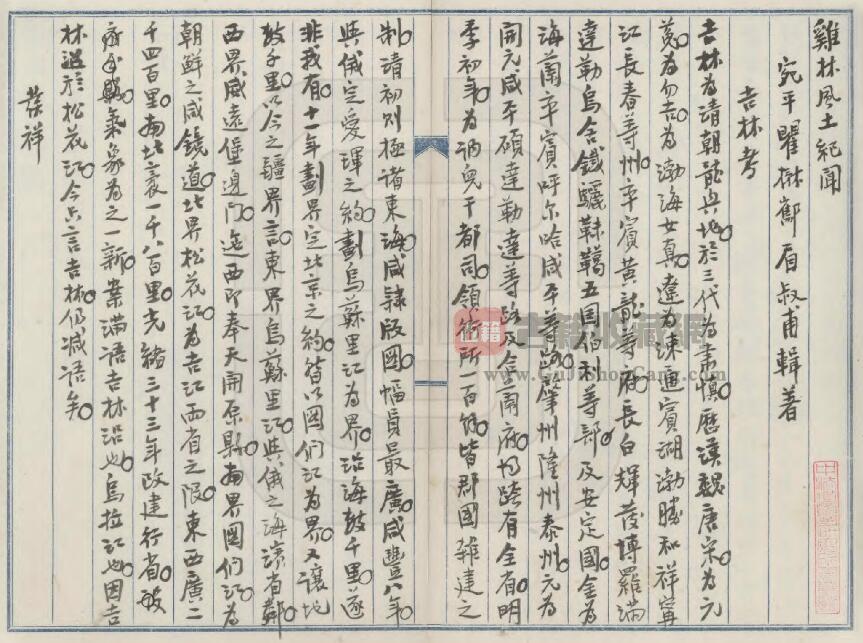 雞林風土紀聞
宛平瞿楙鄰眉叔甫輯著
吉林考
吉林為清朝龍興地於三代為肅慎歷漢魏唐宋為元
菟為勿吉為渤海女真遼為涑通賓湖渤勝和祥寧
江長春等州率賓黃龍等府長白輝發博羅滿
達勒烏舍鐵驪靺鞨五国伯利等部及安定國金為
海蘭率賓呼尔哈咸平等路肇州隆州泰州元為
開元咸平碩達勒達等路及会甯府均跨有全省明
季初年為訥兒干都司領衛所一百餘皆郡國雜建之
制清初則極諸東海咸隸版圖幅員最廣咸豐八年
與俄定愛琿之約劃烏蘇里江為界沿海数千里遂
非我有十一年劃界定北京之約皆以図们江為界又讓地
数千里以今之疆界言東界烏蘇里江與俄之海濱省鄰
西界威遠堡邊门迤西即奉天開原縣南界図们江為
朝鮮之咸鏡道北界松花江為吉江両省之限東西廣二
千四百里南北袤一千八百里光緒三十三年改建行省
氣象為之一新案滿語吉林沿也烏拉江也因吉
林沿於松花江今只言吉林仍減語矣
發祥
古籍收藏网
www.GuJiShouCang.com